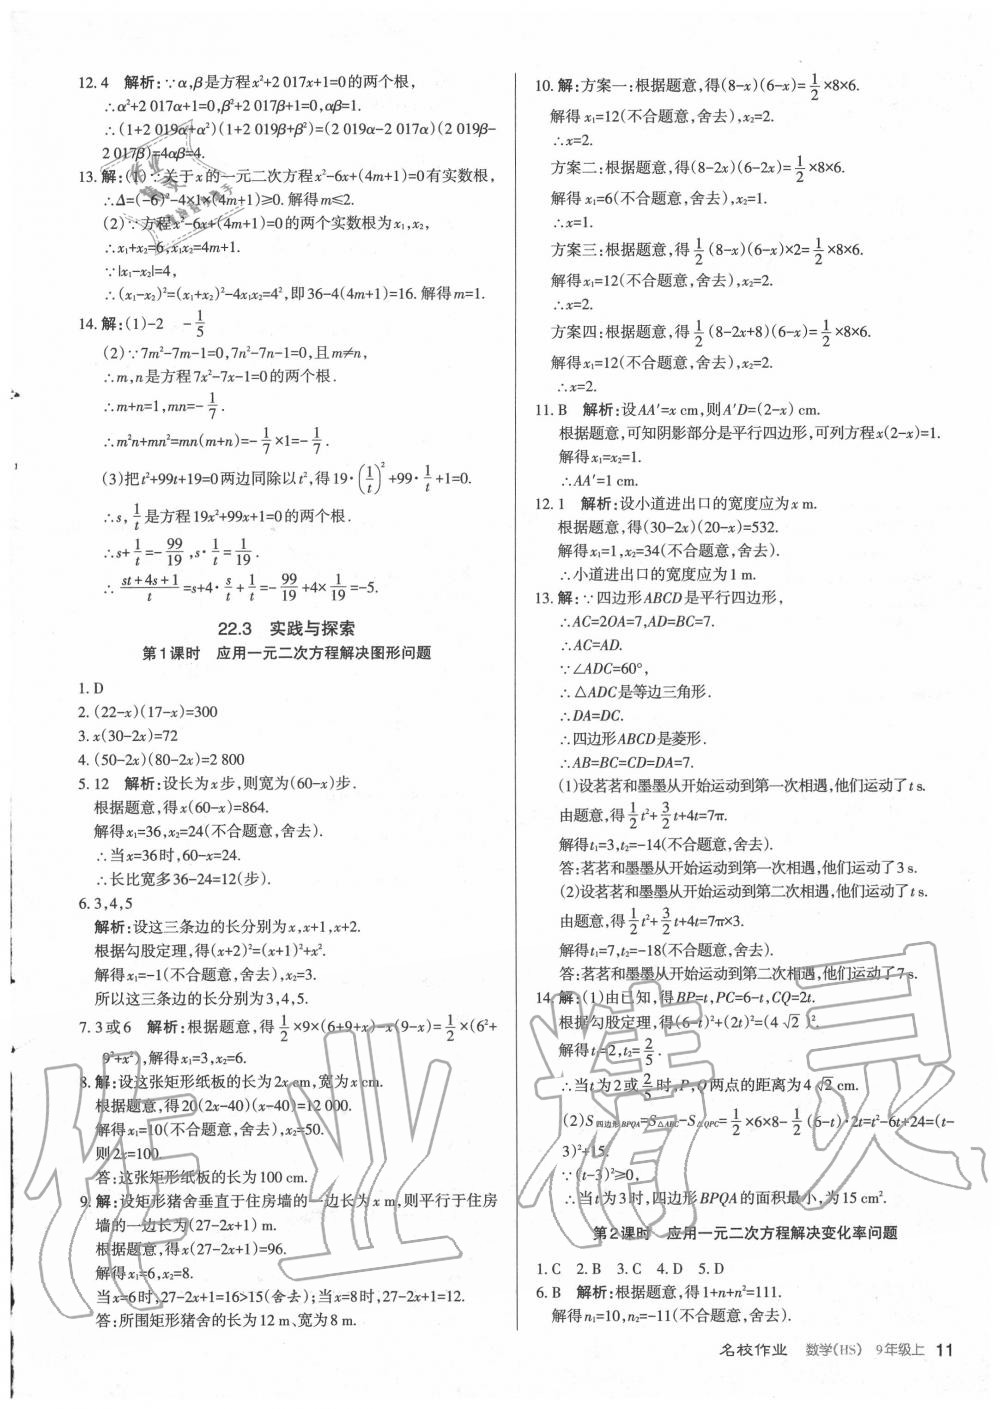 12. 4　解析:∵α,β是方程x²+2 017x+1=0的两个根,
∴α²+2 017α+1=0,β²+2 017β+1=0,αβ=1.
∴(1+2 019α+α²)(1+2 019β+β²)=(2 019α-2 017α)(2 019β-
2 017β)=4αβ=4.
13. 解:(1)∵关于x的一元二次方程x²-6x+(4m+1)=0有实数根,
∴Δ=(-6)²-4×1×(4m+1)≥0. 解得m≤2.
(2)∵方程x²-6x+(4m+1)=0的两个实数根为x₁,x₂,
∴x₁+x₂=6,x₁x₂=4m+1.
∵|x₁-x₂|=4,
∴(x₁-x₂)²=(x₁+x₂)²-4x₁x₂=4²,即36-4(4m+1)=16. 解得m=1.
14. 解:(1)-2　-1/5
(2)∵7m²-7m-1=0,7n²-7n-1=0,且m≠n,
∴m,n是方程7x²-7x-1=0的两个根.
∴m+n=1,mn=-1/7.
∴m²n+mn²=mn(m+n)=-1/7×1=-1/7.
(3)把t²+99t+19=0两边同除以t²,得19·(1/t)²+99·1/t+1=0.
∴s,1/t是方程19x²+99x+1=0的两个根.
∴s+1/t=-99/19,s·1/t=1/19.
∴(st+4s+1)/t=s+4·s/t+1/t=-99/19+4×1/19=-5.
22.3　实践与探索
第1课时　应用一元二次方程解决图形问题
1. D
2. (22-x)(17-x)=300
3. x(30-2x)=72
4. (50-2x)(80-2x)=2 800
5. 12　解析:设长为x步,则宽为(60-x)步.
根据题意,得x(60-x)=864.
解得x₁=36,x₂=24(不合题意,舍去).
∴当x=36时,60-x=24.
∴长比宽多36-24=12(步).
6. 3,4,5
解析:设这三条边的长分别为x,x+1,x+2.
根据勾股定理,得(x+2)²=(x+1)²+x².
解得x₁=-1(不合题意,舍去),x₂=3.
所以这三条边的长分别为3,4,5.
7. 3或6　解析:根据题意,得1/2×9×(6+9+x)-x(9-x)=1/2×(6²+
9²+x²),解得x₁=3,x₂=6.
8. 解:设这张矩形纸板的长为2x cm,宽为x cm.
根据题意,得20(2x-40)(x-40)=12 000.
解得x₁=10(不合题意,舍去),x₂=50.
则2x=100.
答:这张矩形纸板的长为100 cm.
9. 解:设矩形猪舍垂直于住房墙的一边长为x m,则平行于住房
墙的一边长为(27-2x+1) m.
根据题意,得x(27-2x+1)=96.
解得x₁=6,x₂=8.
当x=6时,27-2x+1=16>15(舍去);当x=8时,27-2x+1=12.
答:所围矩形猪舍的长为12 m、宽为8 m.
10. 解:方案一:根据题意,得(8-x)(6-x)=1/2×8×6.
解得x₁=12(不合题意,舍去),x₂=2.
∴x=2.
方案二:根据题意,得(8-2x)(6-2x)=1/2×8×6.
解得x₁=6(不合题意,舍去),x₂=1.
∴x=1.
方案三:根据题意,得1/2(8-x)(6-x)×2=1/2×8×6.
解得x₁=12(不合题意,舍去),x₂=2.
∴x=2.
方案四:根据题意,得1/2(8-2x+8)(6-x)=1/2×8×6.
解得x₁=12(不合题意,舍去),x₂=2.
∴x=2.
11. B　解析:设AA′=x cm,则A′D=(2-x) cm.
根据题意,可知阴影部分是平行四边形,可列方程x(2-x)=1.
解得x₁=x₂=1.
∴AA′=1 cm.
12. 1　解析:设小道进出口的宽度应为x m.
根据题意,得(30-2x)(20-x)=532.
解得x₁=1,x₂=34(不合题意,舍去).
∴小道进出口的宽度应为1 m.
13. 解:∵四边形ABCD是平行四边形,
∴AC=2OA=7,AD=BC=7.
∴AC=AD.
∵∠ADC=60°,
∴△ADC是等边三角形.
∴DA=DC.
∴四边形ABCD是菱形.
∴AB=BC=CD=DA=7.
(1)设茗茗和墨墨从开始运动到第一次相遇,他们运动了t s.
由题意,得1/2t²+3/2t+4t=7π.
解得t₁=3,t₂=-14(不合题意,舍去).
答:茗茗和墨墨从开始运动到第一次相遇,他们运动了3 s.
(2)设茗茗和墨墨从开始运动到第二次相遇,他们运动了t s.
由题意,得1/2t²+3/2t+4t=7π×3.
解得t₁=7,t₂=-18(不合题意,舍去).
答:茗茗和墨墨从开始运动到第二次相遇,他们运动了7 s.
14. 解:(1)由已知,得BP=t,PC=6-t,CQ=2t.
根据勾股定理,得(6-t)²+(2t)²=(4√2)².
解得t₁=2,t₂=2/5.
∴当t为2或2/5时,P,Q两点的距离为4√2 cm.
(2)S四边形BPQA=S△ABC-S△QPC=1/2×6×8-1/2(6-t)·2t=t²-6t+24=(t-
3)²+15.
∵(t-3)²≥0,
∴当t为3时,四边形BPQA的面积最小,为15 cm².
第2课时　应用一元二次方程解决变化率问题
1. C　2. B　3. C　4. D　5. D
6. B　解析:根据题意,得1+n+n²=111.
解得n₁=10,n₂=-11(不合题意,舍去).
名校作业　数学(HS)　9年级上　11
作业精灵